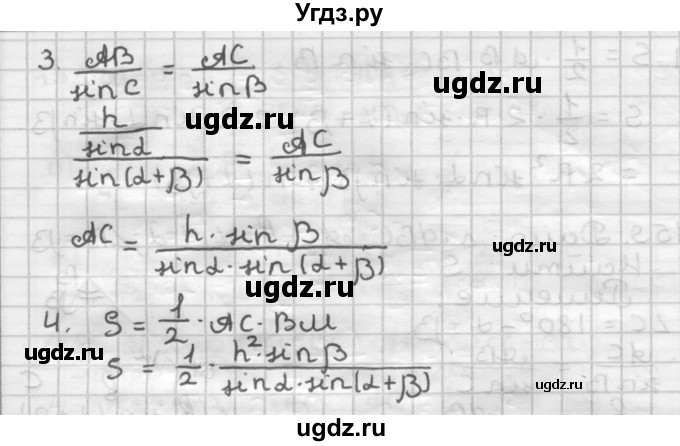 Угдз.ру
3. AB/sin C = AC/sin β
ugdz.ru
ugdz.ru
(h/sin α)/sin(α+β) = AC/sin β
ugdz.ru
AC = h · sin β/(sin α · sin(α+β))
ugdz.ru
ugdz.ru
4. S = 1/2 · AC · BM
ugdz.ru
S = 1/2 · h² · sin β/(sin α · sin(α+β))
ugdz.ru
ugdz.ru